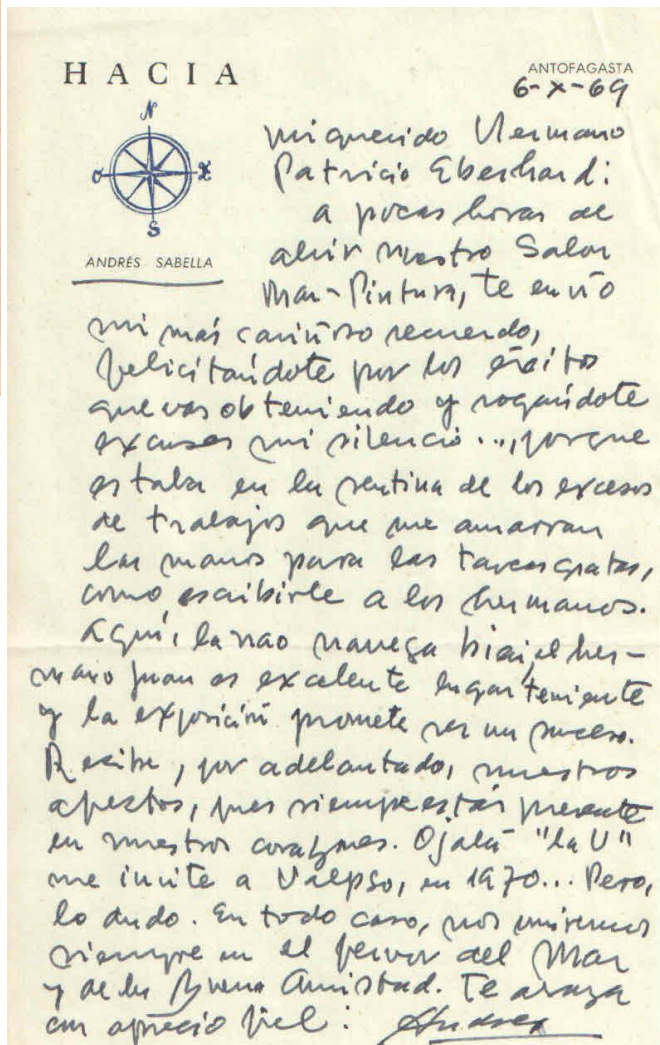 HACIA
ANTOFAGASTA
6-X-69
N
O E
S
ANDRÉS SABELLA
mi querido Hermano
Patricio Eberhard:
a pocas horas de
abrir nuestro Salon
Mar-Pintura, te envío
mi más cariñoso recuerdo,
felicitándote por los éxitos
que vas obteniendo y rogándote
excuses mi silencio..., porque
estaba en la sentina de los excesos
de trabajos que me amarran
las manos para las tareas gratas,
como escribirle a los hermanos.
Aquí, la nao navega bien; el her-
mano Juan es excelente lugarteniente
y la exposición promete ser un suceso.
Recibe, por adelantado, nuestros
afectos, pues siempre estás presente
en nuestros corazones. Ojalá "la U"
me invite a Valpso, en 1970... Pero,
lo dudo. En todo caso, nos uniremos
siempre en el fervor del Mar
y de la Buena Amistad. Te abraza
con aprecio fiel: Andrés